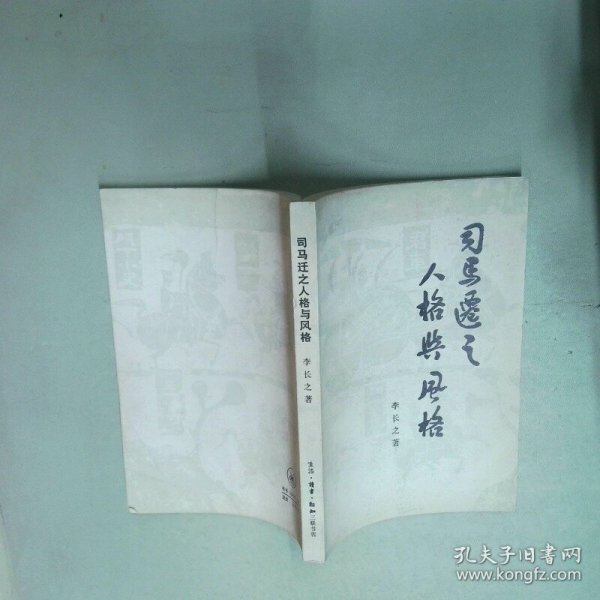 司马迁之
人格與风格
李长之著
司马迁之人格与风格
李长之著
生活·讀書·新知三联书店
孔夫子旧书网
www.kongfz.com